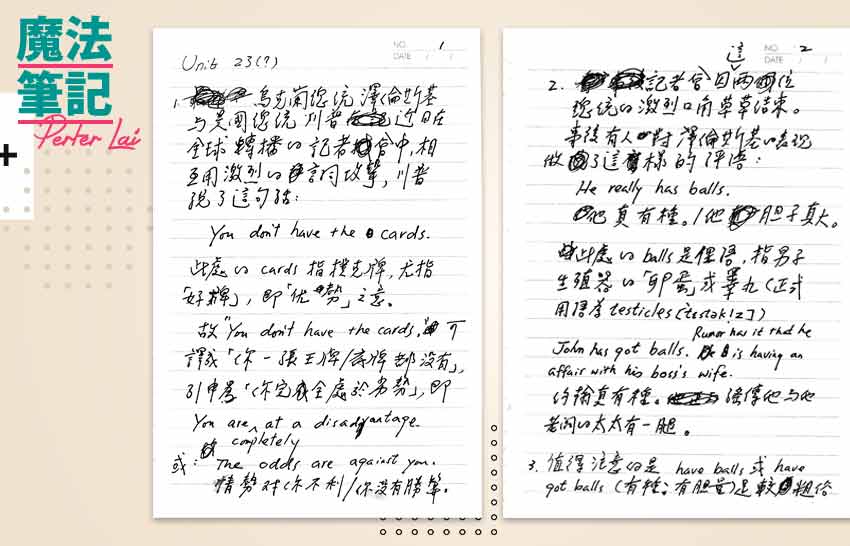 魔法
筆記
Perter Lai
NO. 1
DATE / /
Unit 23(?)
1. 烏克蘭總統澤倫斯基
与美國總統川普近日在
全球轉播的記者會中,相
互用激烈的言詞攻擊,川普
說了這句話:
You don't have the cards.
此處的 cards 指撲克牌,尤指
「好牌」,即「优勢」之意。
故 "You don't have the cards. 可
譯成「你一張王牌/底牌都沒有」,
引申為「你完全處於劣勢」,即
You are completely at a disadvantage.
或: The odds are against you.
情勢对你不利/你沒有勝算。
NO. 2
DATE / /
2. 這記者會因兩位
總統的激烈口角草草結束。
事後有人对澤倫斯基的表現
做了這樣的評語:
He really has balls.
他真有種。/他胆子真大。
此處的 balls 是俚語,指男子
生殖器的「卵蛋」或睪丸(正式
用語為 testicles
Rumor has it that he
John has got balls. is having an
affair with his boss's wife.
約翰真有種。謠傳他与他
老闆的太太有一腿。
3. 值得注意的是 have balls 或 have
got balls (有種;有胆量)是較粗俗